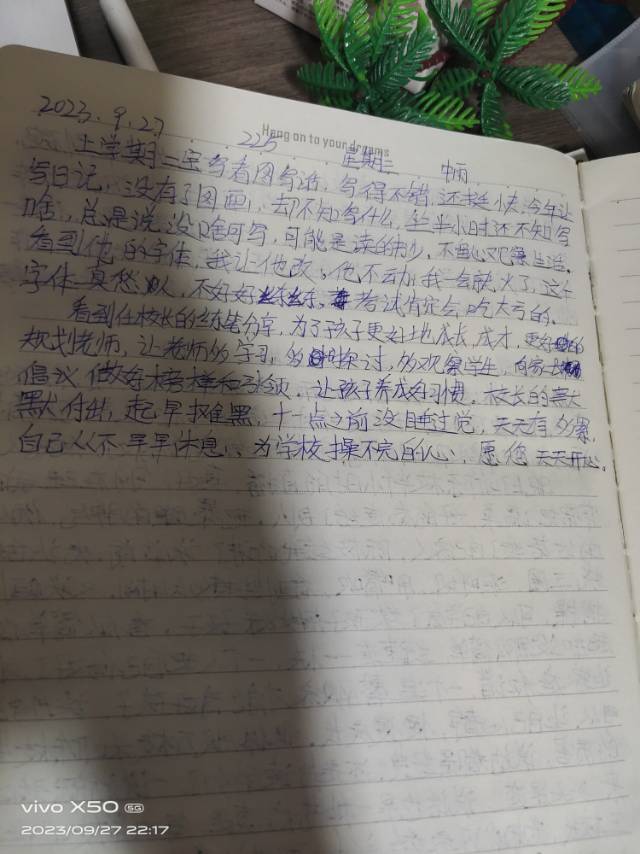 Hang on to your dreams
2023.9.27 225 星期三
上学期二宝写看图写话,写得不错,还挺快,今年让
写日记,没有了图画,却不知写什么,坐半小时还不知写
啥,总是说没啥可写,可能是读的书少,不用心观察生活。
看到他的字体,我让他改,他不动,我一会就火了,这个
字体真愁人,不好好练练,考试肯定会吃大亏的。
看到任校长的练笔分享,为了孩子更好地成长,成才,更好的
规划老师,让老师多学习,多探讨,多观察学生,向家长
倡议做好榜样和引领,让孩子养成好习惯,校长的默
默付出,起早摸黑,十一点之前没睡过觉,天天有多累,
自己从不早早休息,为学校操不完的心,愿您天天开心。
vivo X50 5G
2023/09/27 22:17